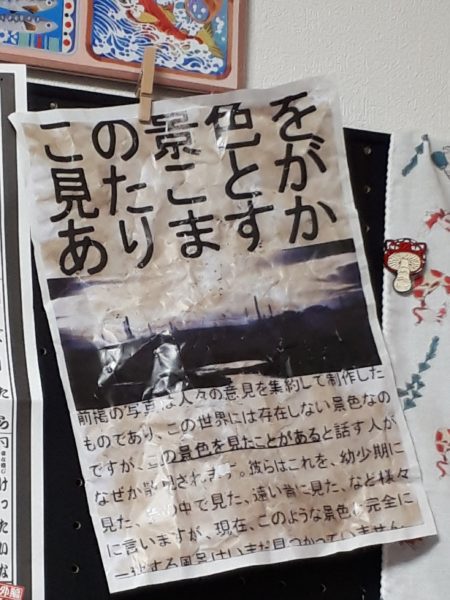 この景色を
見たことが
ありますか
前掲の写真は人々の意見を集約して制作した
ものであり、この世界には存在しない景色なの
ですが、の景色を見たことがあると話す人が
なぜか散見されます。彼らはこれを、幼少期に
見た、の中で見た、遠い昔に見た、など様々
に言いますが、現在、このような景色に完全に
一致する風景はいまだ見つかっていません
けったいな